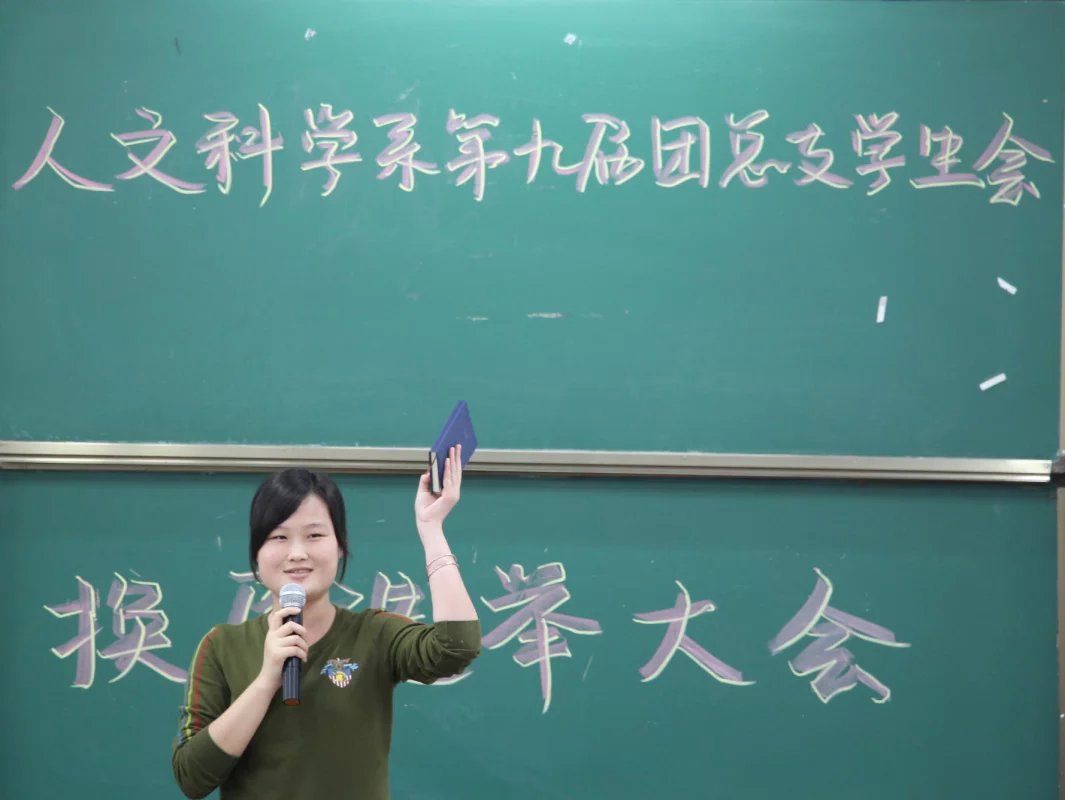 人文科学系第九届团总支学生会
换届选举大会